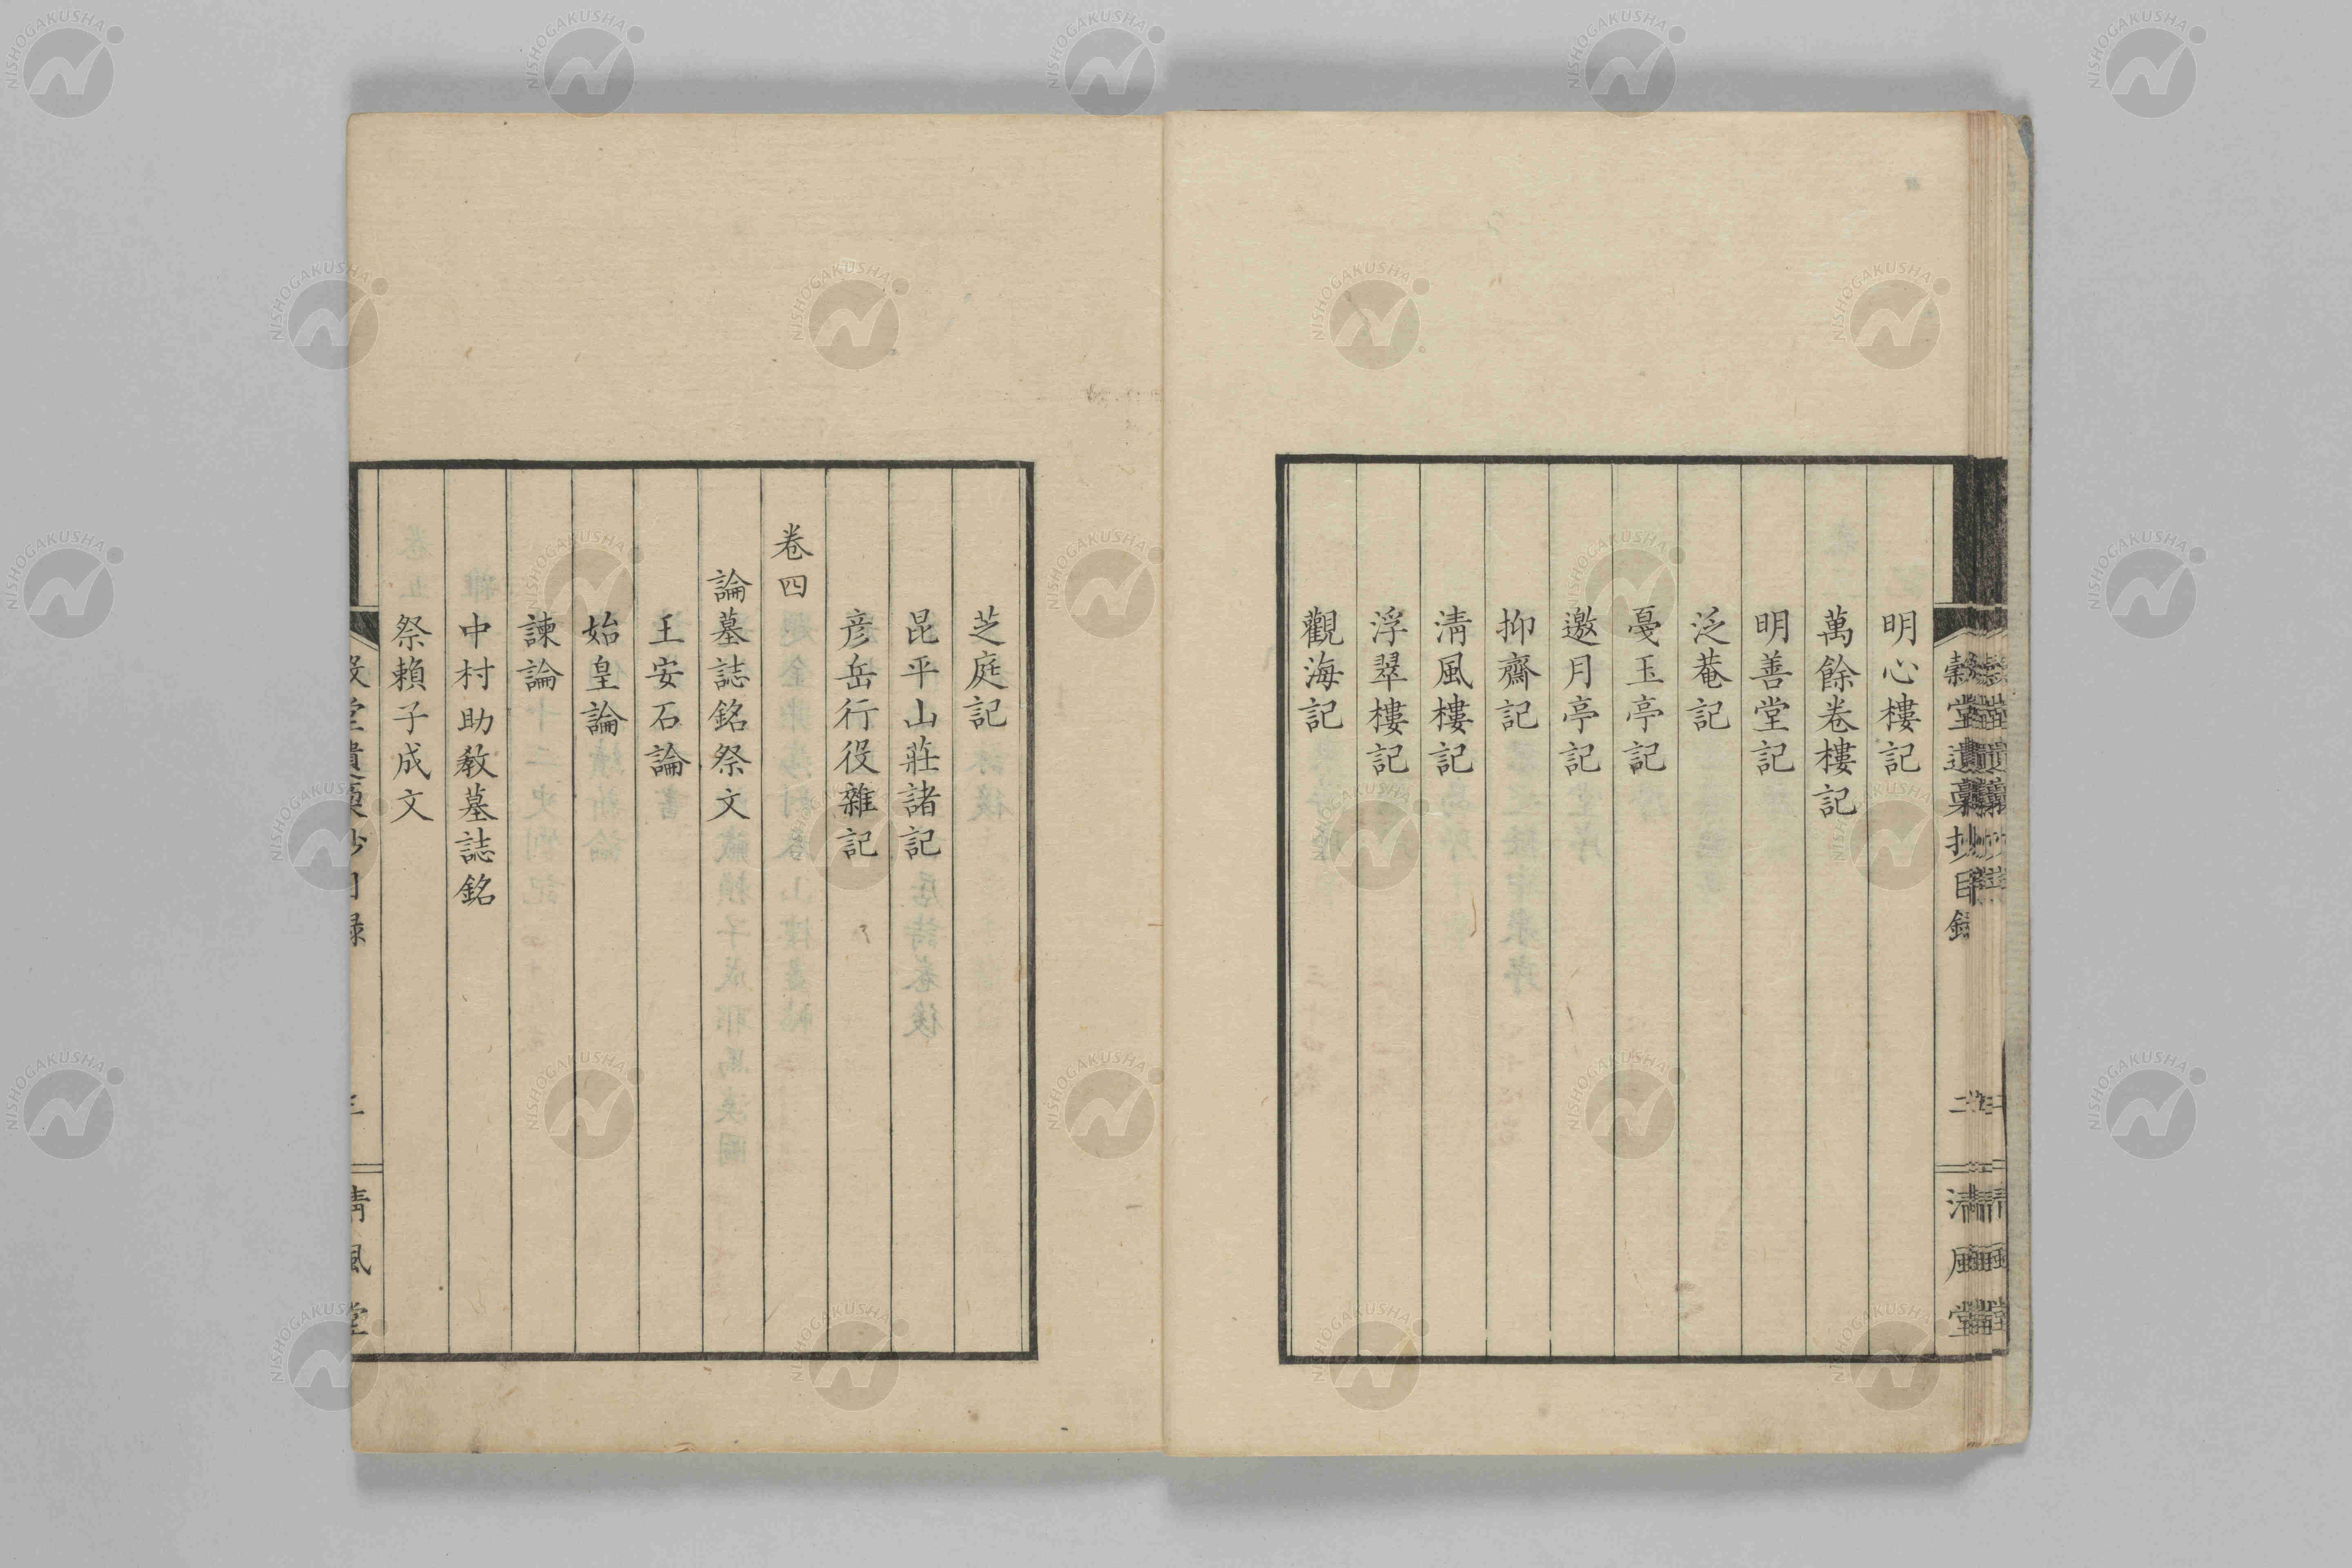 明心樓記
萬餘卷樓記
明善堂記
泛菴記
戞玉亭記
邀月亭記
抑齋記
淸風樓記
浮翠樓記
觀海記
穀堂遺稾抄目錄
二
清風堂
芝庭記
昆平山莊諸記
彦岳行役雜記
卷四
論墓誌銘祭文
王安石論
始皇論
諫論
中村助教墓誌銘
祭賴子成文
穀堂遺稾抄目錄
三
清風堂